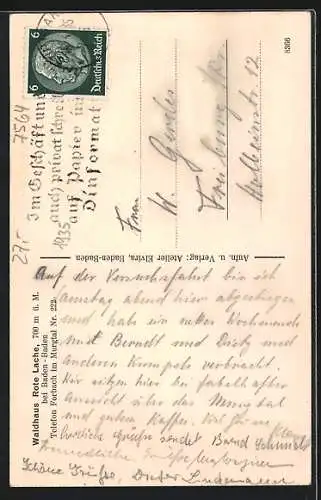 6 6
Deutsches Reich
7564
27,-
1935
Im Geschäft und
auch privat schreib
auf Papier in
Dinformat
8366
Frau
W.
Freiburg
Holbeinstr. 12
Aufn. u. Verlag: Atelier Elvira, Baden-Baden
Waldhaus Rote Lache, 700 m ü. M.
Pa. bei Baden-Baden
Telefon Forbach im Murgtal Nr. 222
Auf der Versuchsfahrt bin ich
Samstag abend hier abgestiegen
und hab ein nettes Wochenende
mit Berndt und Dietz und
anderen Kumpels verbracht.
Wir sitzen hier bei fabelhafter
Aussicht über das Murgtal
und gutem Kaffee. Viel
herzliche Grüße sendet Bernd Schmidt
freundliche Grüße
Schöne Grüße, Dieter